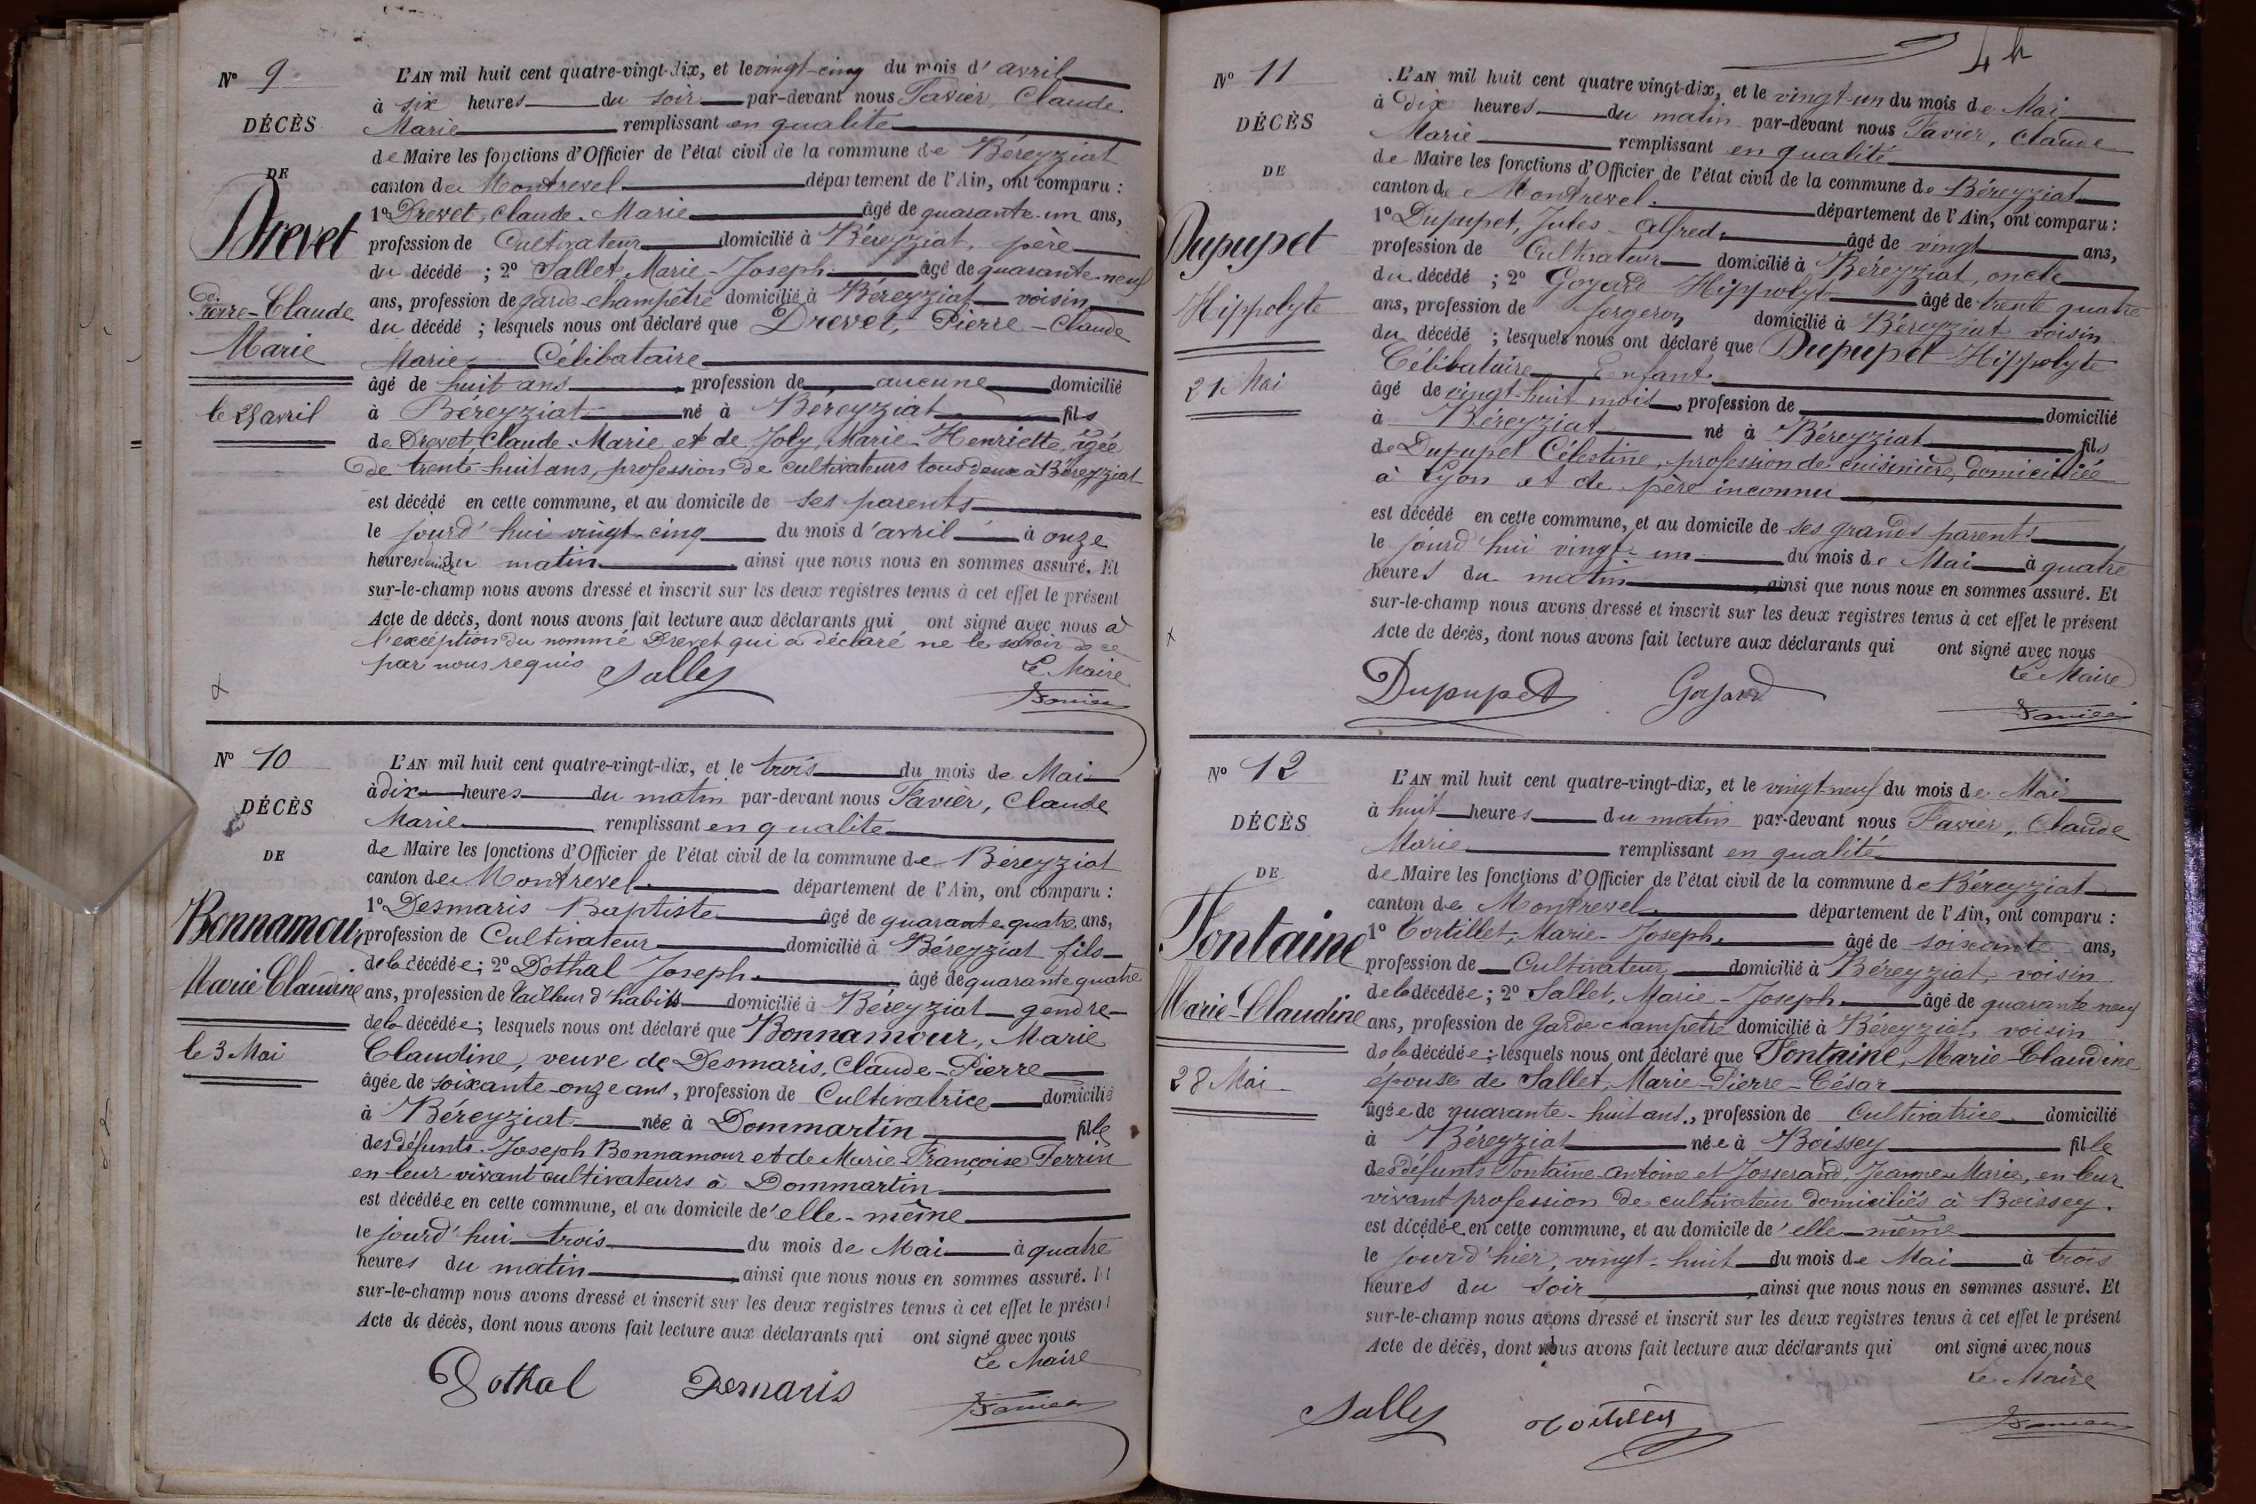 N° 9
DÉCÈS
DE
Drevet
Pierre-Claude
Marie
le 25 avril
L'AN mil huit cent quatre-vingt-dix, et le vingt-cinq du mois d'avril
à six heures du soir par-devant nous Favier, Claude
Marie remplissant en qualité
de Maire les fonctions d'Officier de l'état civil de la commune de Béreyziat
canton de Montrevel département de l'Ain, ont comparu :
1° Drevet, Claude-Marie âgé de quarante-un ans,
profession de Cultivateur domicilié à Béreyziat, père
du décédé ; 2° Sallet, Marie-Joseph âgé de quarante-neuf
ans, profession de garde-champêtre domicilié à Béreyziat voisin
du décédé ; lesquels nous ont déclaré que Drevet, Pierre-Claude
Marie, Célibataire
âgé de huit ans, profession de aucune domicilié
à Béreyziat né à Béreyziat fils
de Drevet, Claude-Marie et de Joly, Marie-Henriette, âgée
de trente-huit ans, profession de cultivateurs tous deux à Béreyziat
est décédé en cette commune, et au domicile de ses parents
le jourd'hui vingt-cinq du mois d'avril à onze
heures du matin ainsi que nous nous en sommes assuré. Et
sur-le-champ nous avons dressé et inscrit sur les deux registres tenus à cet effet le présent
Acte de décès, dont nous avons fait lecture aux déclarants qui ont signé avec nous à
l'exception du nommé Drevet qui a déclaré ne le savoir de ce
par nous requis
Le Maire
Sallet
Favier
N° 10
DÉCÈS
DE
Bonnamour
Marie Claudine
le 3 Mai
L'AN mil huit cent quatre-vingt-dix, et le trois du mois de Mai
à dix heures du matin par-devant nous Favier, Claude
Marie remplissant en qualité
de Maire les fonctions d'Officier de l'état civil de la commune de Béreyziat
canton de Montrevel département de l'Ain, ont comparu :
1° Desmaris Baptiste âgé de quarante-quatre ans,
profession de Cultivateur domicilié à Béreyziat fils
de la décédée ; 2° Dothal Joseph âgé de quarante quatre
ans, profession de tailleur d'habits domicilié à Béreyziat gendre
de la décédée ; lesquels nous ont déclaré que Bonnamour, Marie
Claudine, veuve de Desmaris, Claude-Pierre
âgée de soixante-onze ans, profession de Cultivatrice domicilié
à Béreyziat née à Dommartin fille
des défunts Joseph Bonnamour et de Marie-Françoise Perrin
en leur vivant cultivateurs à Dommartin
est décédée en cette commune, et au domicile de'elle-même
le jourd'hui trois du mois de Mai à quatre
heures du matin ainsi que nous nous en sommes assuré. Et
sur-le-champ nous avons dressé et inscrit sur les deux registres tenus à cet effet le présent
Acte de décès, dont nous avons fait lecture aux déclarants qui ont signé avec nous
Le Maire
Dothal Demaris
Favier
N° 11
DÉCÈS
DE
Dupupet
Hippolyte
21 Mai
L'AN mil huit cent quatre-vingt-dix, et le vingt-un du mois de Mai
à dix heures du matin par-devant nous Favier, Claude
Marie remplissant en qualité
de Maire les fonctions d'Officier de l'état civil de la commune de Béreyziat
canton de Montrevel département de l'Ain, ont comparu :
1° Dupupet, Jules-Alfred âgé de vingt ans,
profession de Cultivateur domicilié à Béreyziat, oncle
du décédé ; 2° Goyard Hippolyte âgé de trente quatre
ans, profession de forgeron domicilié à Béreyziat voisin
du décédé ; lesquels nous ont déclaré que Dupupet Hippolyte
Célibataire Enfant
âgé de vingt-huit mois, profession de domicilié
à Béreyziat né à Béreyziat fils
de Dupupet Célestine, profession de cuisinière, domiciliée
à Lyon et de père inconnu
est décédé en cette commune, et au domicile de ses grands parents
le jourd'hui vingt-un du mois de Mai à quatre
heures du matin ainsi que nous nous en sommes assuré. Et
sur-le-champ nous avons dressé et inscrit sur les deux registres tenus à cet effet le présent
Acte de décès, dont nous avons fait lecture aux déclarants qui ont signé avec nous
Le Maire
Dupupet Goyard
Favier
N° 12
DÉCÈS
DE
Fontaine
Marie-Claudine
28 Mai
L'AN mil huit cent quatre-vingt-dix, et le vingt-neuf du mois de Mai
à huit heures du matin par-devant nous Favier, Claude
Marie remplissant en qualité
de Maire les fonctions d'Officier de l'état civil de la commune de Béreyziat
canton de Montrevel département de l'Ain, ont comparu :
1° Tortillet, Marie-Joseph âgé de soixante ans,
profession de Cultivateur domicilié à Béreyziat, voisin
de la décédée ; 2° Sallet, Marie-Joseph âgé de quarante neuf
ans, profession de Garde champêtre domicilié à Béreyziat, voisin
de la décédée ; lesquels nous ont déclaré que Fontaine, Marie-Claudine
épouse de Sallet, Marie-Pierre-César
âgée de quarante-huit ans, profession de Cultivatrice domicilié
à Béreyziat née à Boissey fille
des défunts Fontaine Antoine et Josserand, Jeanne-Marie, en leur
vivant profession de cultivateur domiciliés à Boissey.
est décédée en cette commune, et au domicile de'elle-même
le jourd'hier, vingt-huit du mois de Mai à trois
heures du soir ainsi que nous nous en sommes assuré. Et
sur-le-champ nous avons dressé et inscrit sur les deux registres tenus à cet effet le présent
Acte de décès, dont nous avons fait lecture aux déclarants qui ont signé avec nous
Le Maire
Sallet Tortillet
Favier